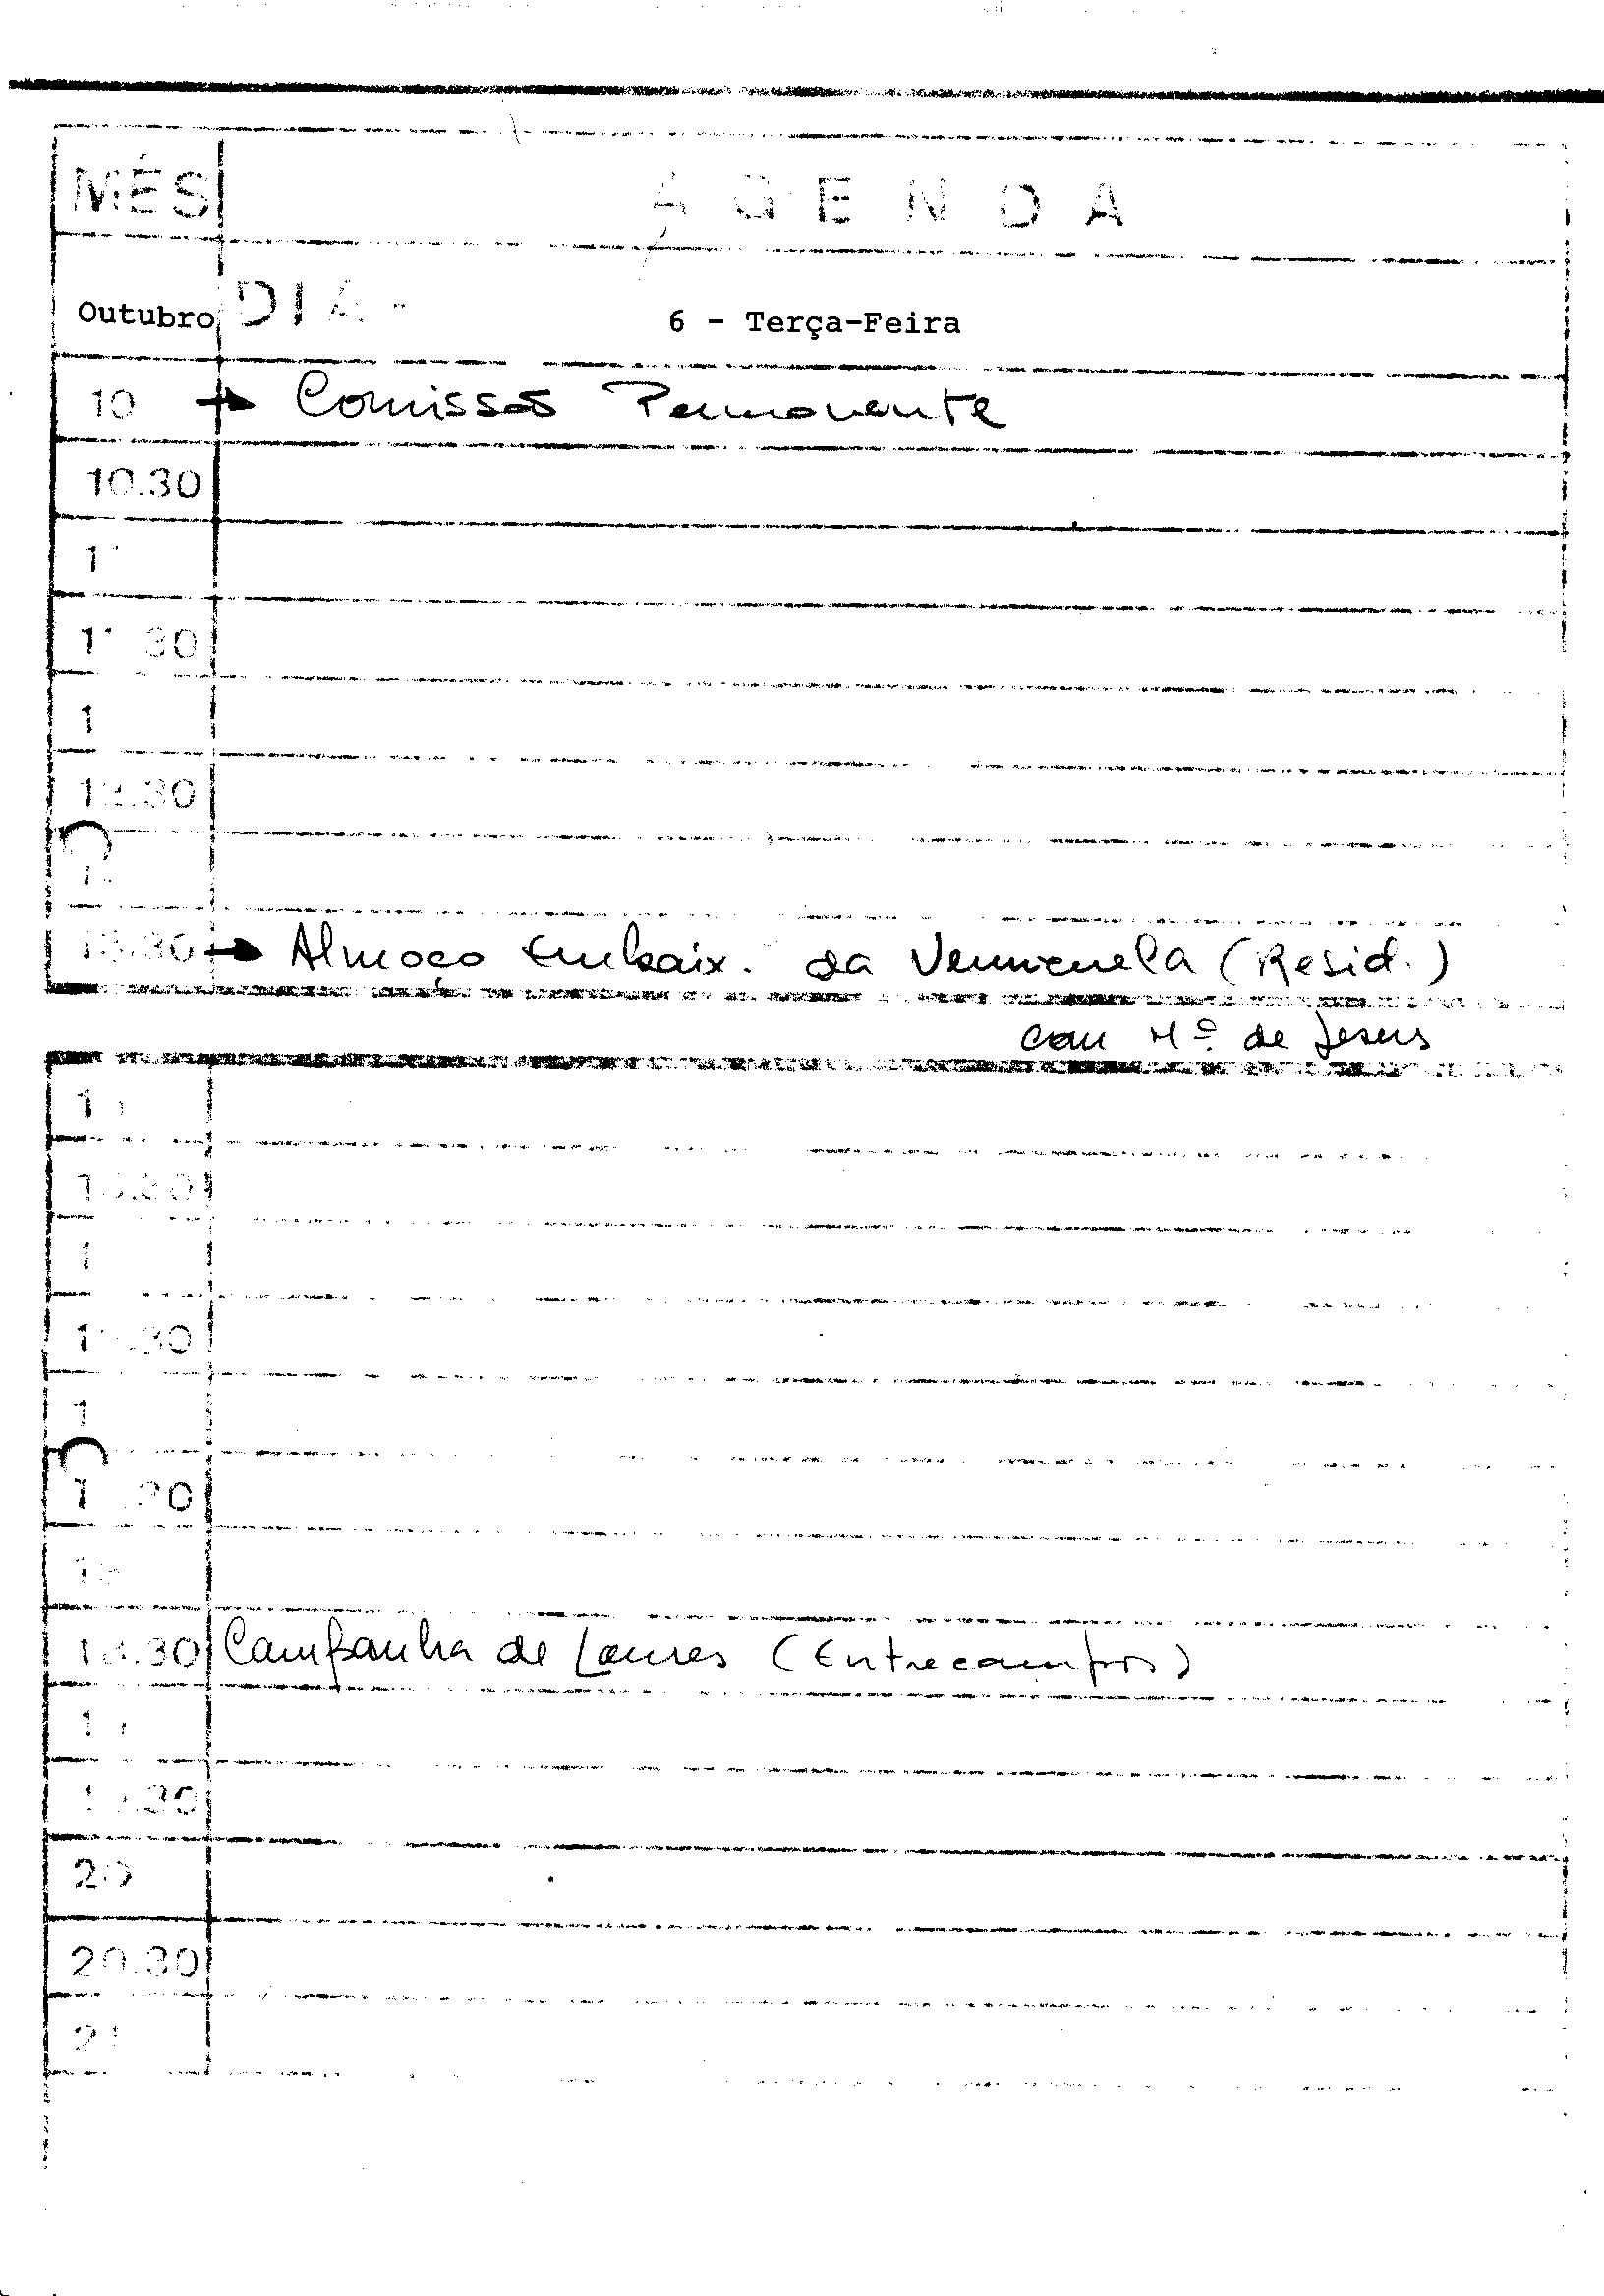 MÊS AGENDA
Outubro DIA - 6 - Terça-Feira
10 Comissão Permanente
10.30
1
1 30
1
12.30
1
13.30 Almoço Embaix. da Venezuela (Resid.)
com Mª de Jesus
1
1 .30
1
1 .30
1
1 .30
18
18.30 Campanha de Loures (Entrecampos)
1
1 .30
20
20.30
21